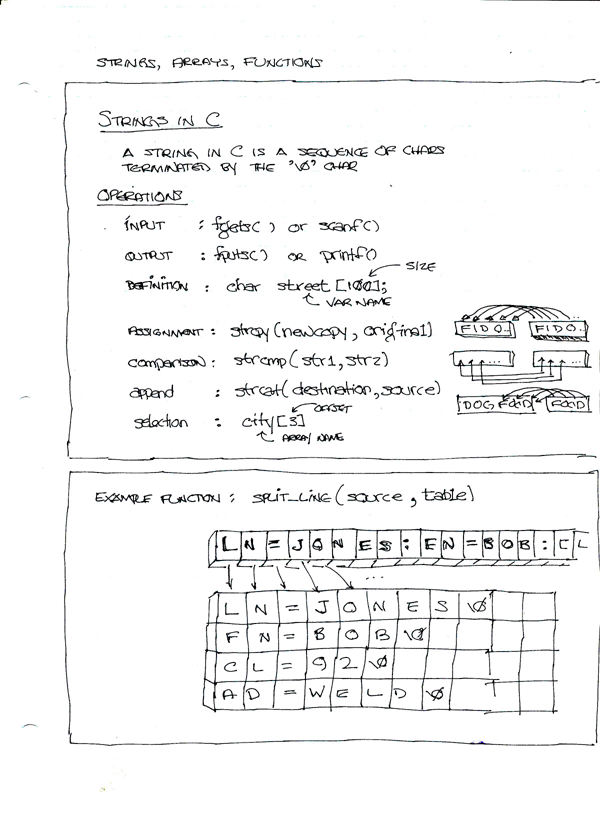 STRINGS, ARRAYS, FUNCTIONS
STRINGS IN C
A STRING IN C IS A SEQUENCE OF CHARS
TERMINATED BY THE '\0' CHAR
OPERATIONS
INPUT : fgets( ) or scanf()
OUTPUT : fputs() OR printf()
SIZE
DEFINITION : char street [100];
VAR NAME
ASSIGNMENT : strcpy (newcopy, original)
FIDO.. FIDO..
comparison : strcmp (str1, str2)
... ...
append : strcat (destination, source)
DOG FOOD FOOD
OFFSET
selection : city [3]
ARRAY NAME
EXAMPLE FUNCTION : SPLIT_LINE (source, table)
LN=JONES:FN=BOB:CL
...
LN=JONES\0
FN=BOB\0
CL=92\0
AD=WELD\0